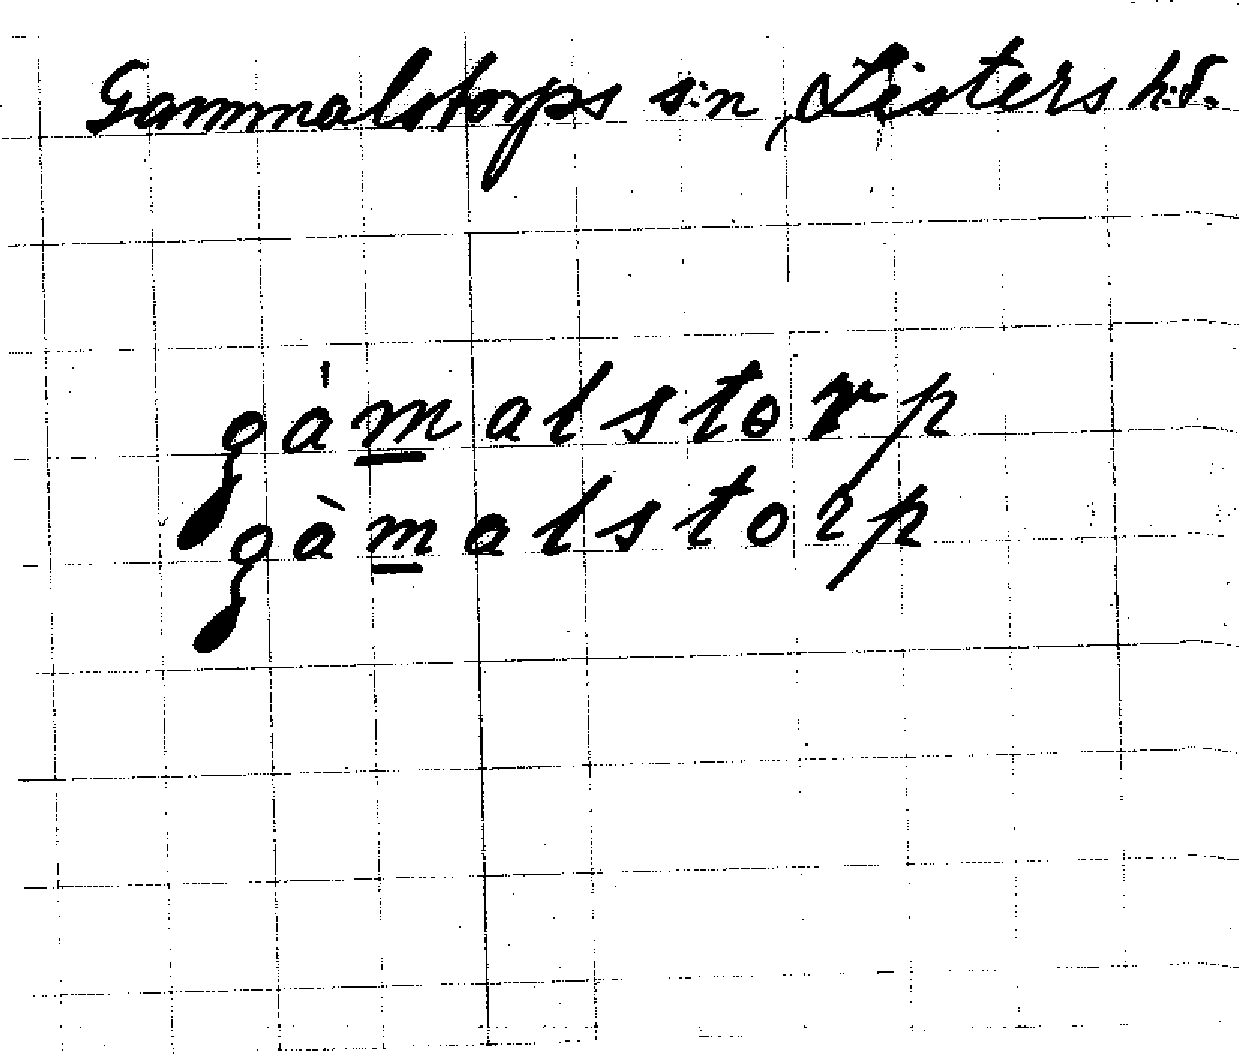 Gammalstorps s:n, Listers h:d.
gàmalstorp
gàmalstorp